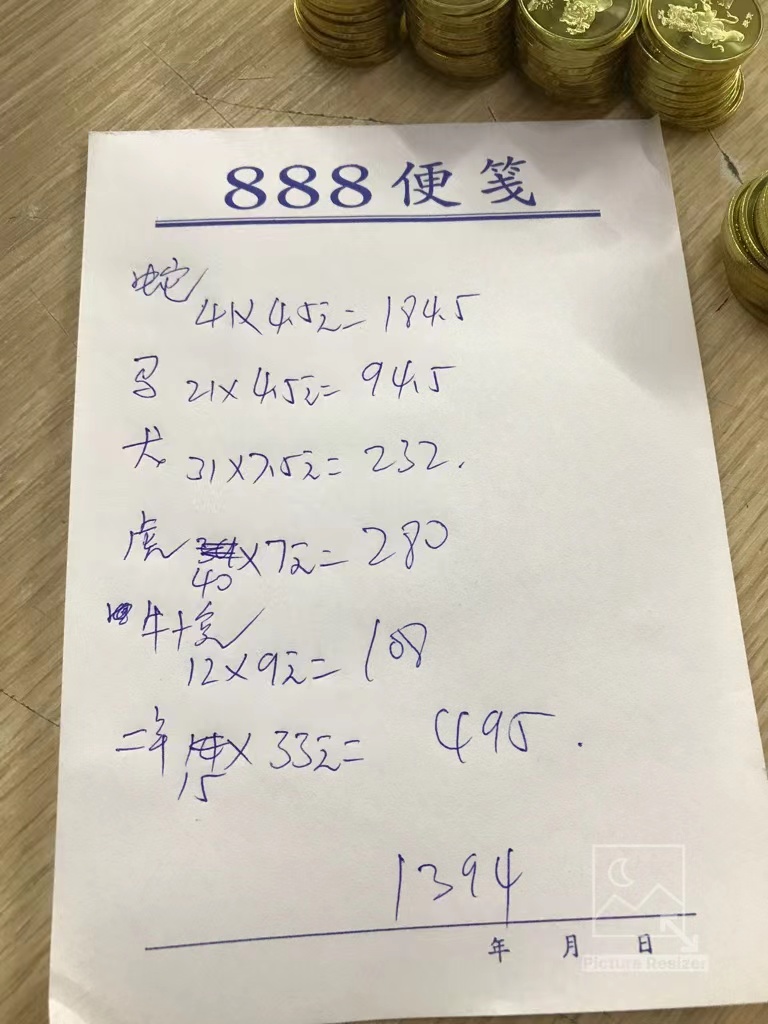 888便笺
蛇
41×4.5元=184.5
马 21×4.5元=94.5
犬 31×7.5元=232.
虎 ×7元=280
40
牛
12×9元=108
二羊 ×33元= 495.
15
1394
年 月 日
Picture Resizer